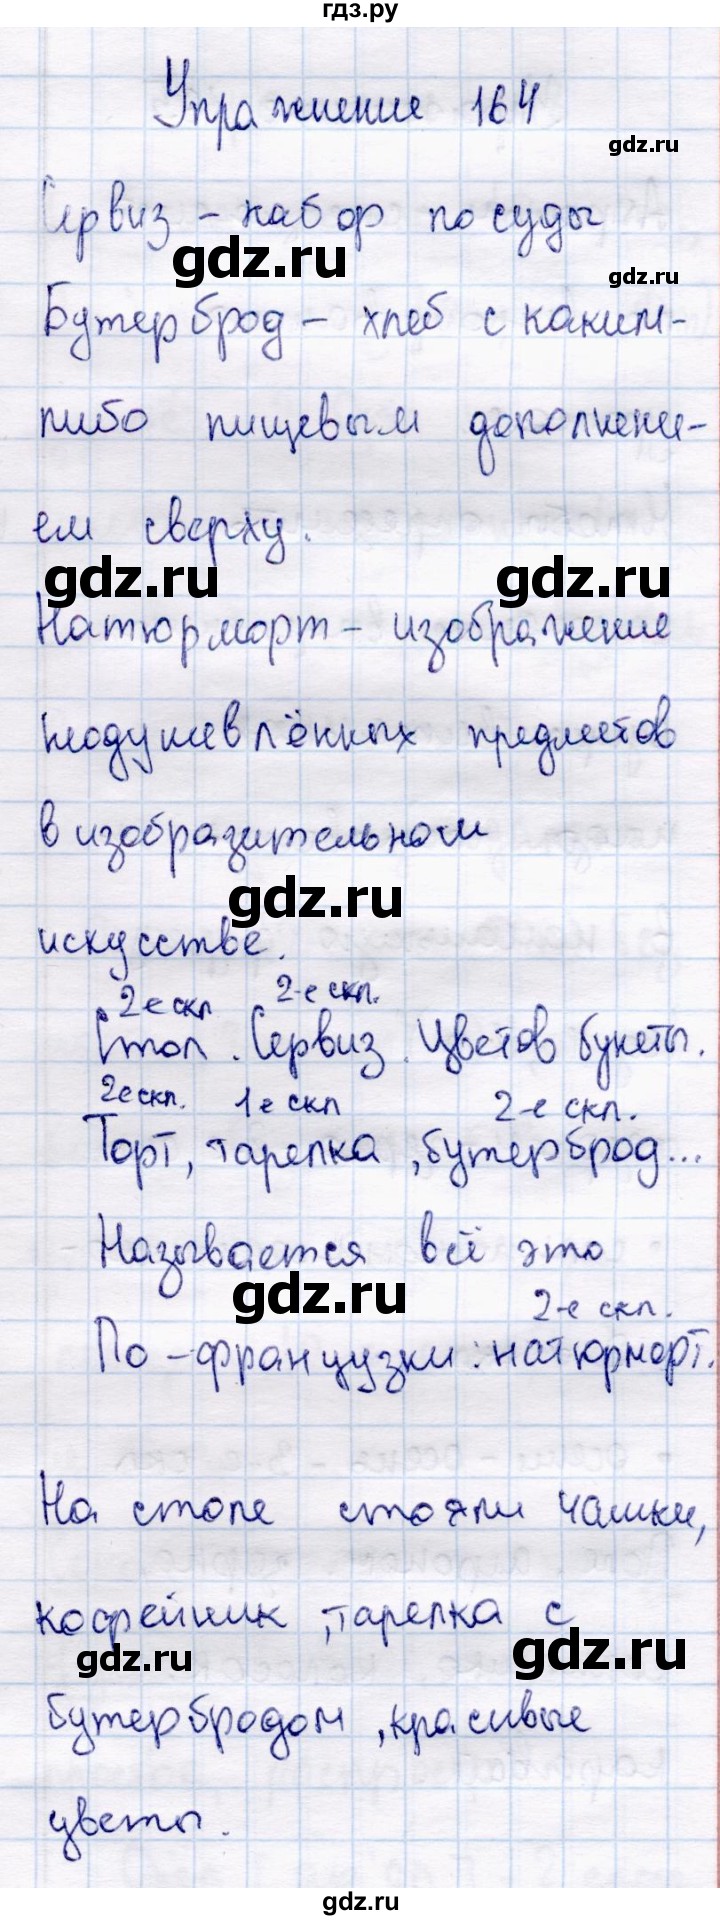 гдз.ру
Упражнение 164
gdz.ru
Сервиз - набор посуды
gdz.ru
gdz.ru
Бутерброд - хлеб с каким-
либо пищевым дополнени-
ем сверху.
gdz.ru
gdz.ru
Натюрморт - изображение
неодушевлённых предметов
в изобразительном
gdz.ru
искусстве.
2-е скл 2-е скл.
Стол. Сервиз. Цветов букеты.
2е скл. 1е скл 2-е скл.
Торт, тарелка, бутерброд...
Называется всё это
gdz.ru
2-е скл.
По-французки: натюрморт.
На столе стояли чашки,
кофейник, тарелка с
gdz.ru
gdz.ru
бутербродом, красивые
цветы.
gdz.ru